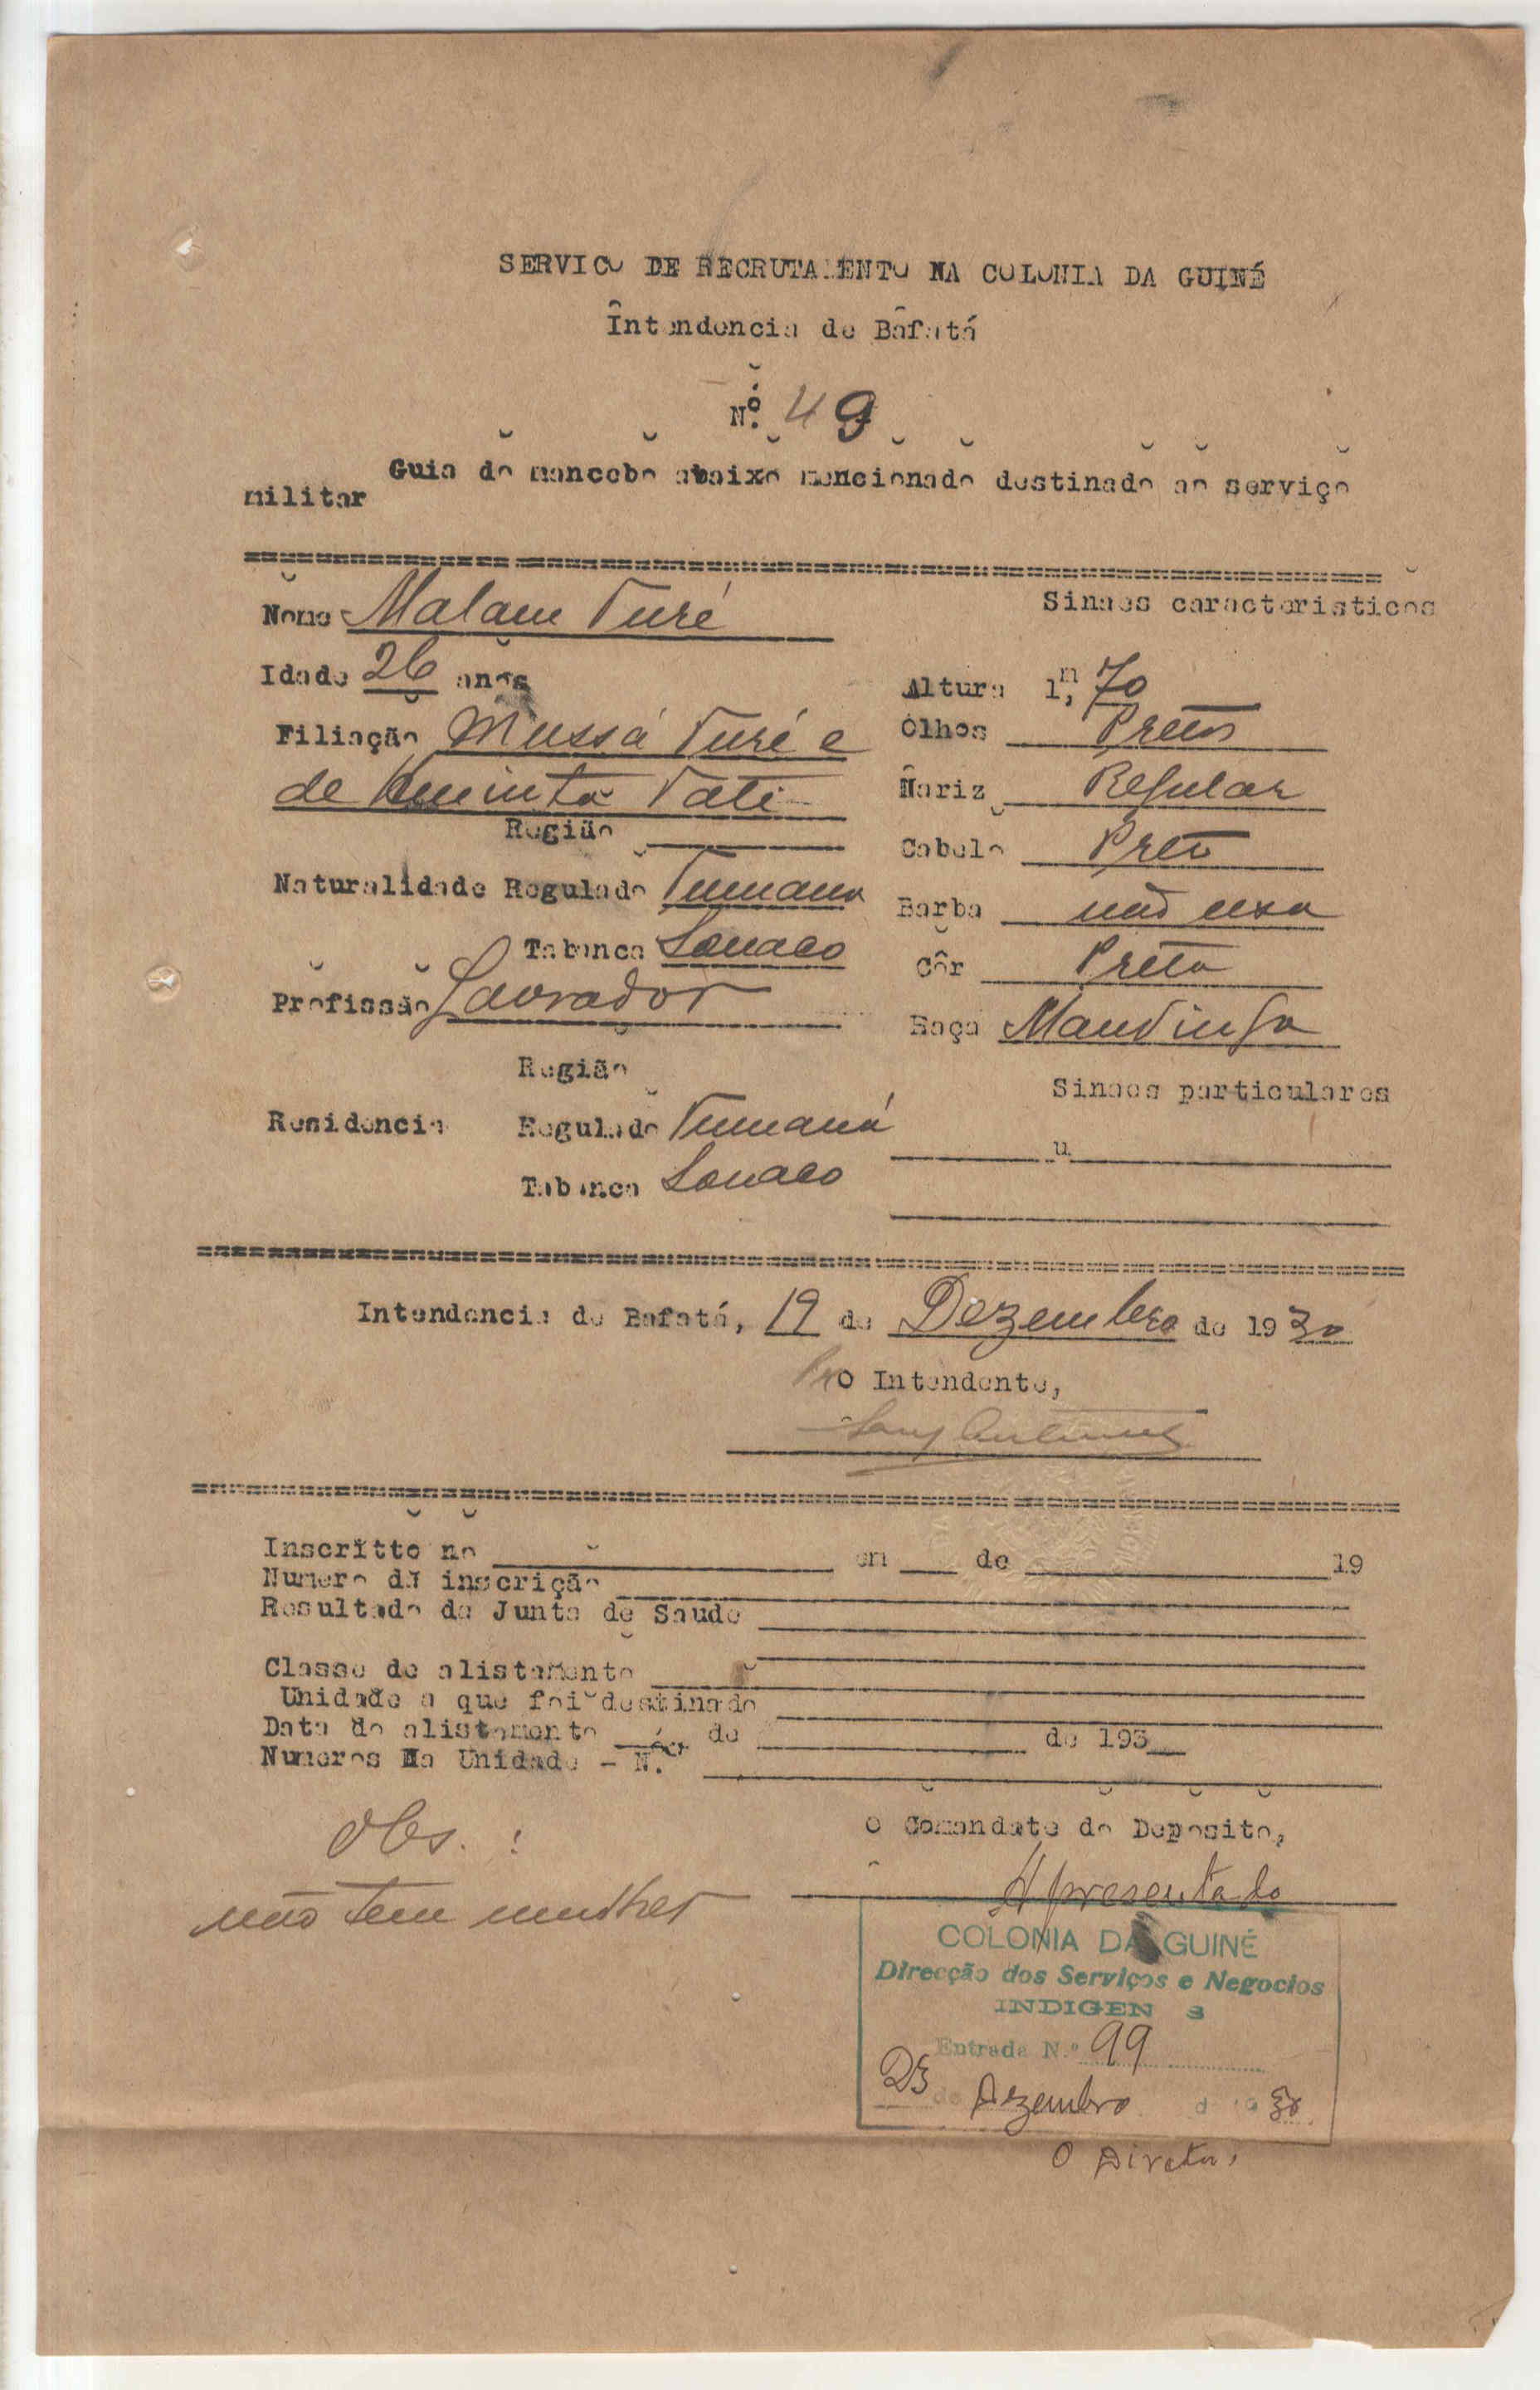 SERVICO DE RECRUTAMENTO NA COLONIA DA GUINÉ
Intendencia de Bafatá
Nº. 49
Guia do mancebo abaixo mencionado destinado ao serviço
militar
Nome Malam Turé
Sinaes caracteristicos
Idade 26 anos
Altura 1,m 70
Filiação Mussá Turé e
Olhos Pretos
de Kuminta Tati
Nariz Regular
Região
Cabelo Preto
Naturalidade Regulado Tumana
Barba não usa
Tabanca Sonaco
Côr Preta
Profissão Lavrador
Raça Mandinga
Região
Sinaes particulares
Residencia Regulado Tumaná
"
Tabanca Sonaco
Intendencia de Bafatá, 19 de Dezembro de 1930
Pr O Intendente,
Inscritto no em de 19
Numero da inscrição
Resultado da Junta de Saude
Classe de alistamento
Unidade a que foi destinado
Data do alistamento de de 193
Numeros Na Unidade - N.
Obs. :
O Comandate do Deposito,
não tem mulher
Apresentado
COLONIA DA GUINÉ
Direcção dos Serviços e Negocios
INDIGEN S
Entrada N.º 99
23 de Dezembro d 19 30
O Diretor,